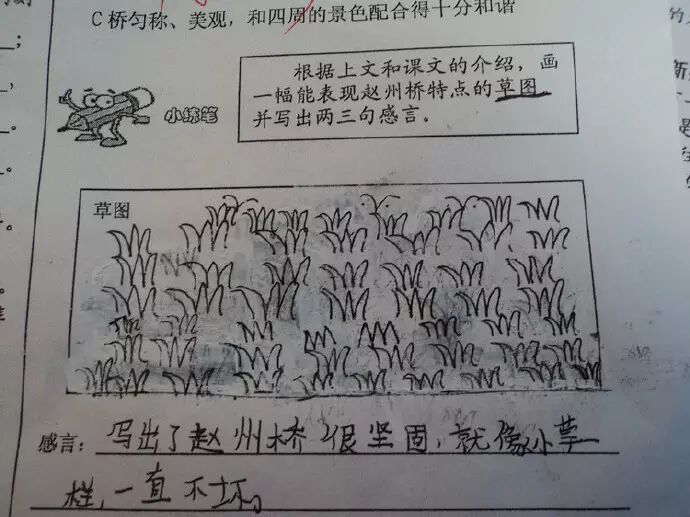 C桥匀称、美观，和四周的景色配合得十分和谐
根据上文和课文的介绍，画
一幅能表现赵州桥特点的草图
并写出两三句感言。
小练笔
草图
感言：写出了赵州桥很坚固，就像小草一
样，一直不坏。